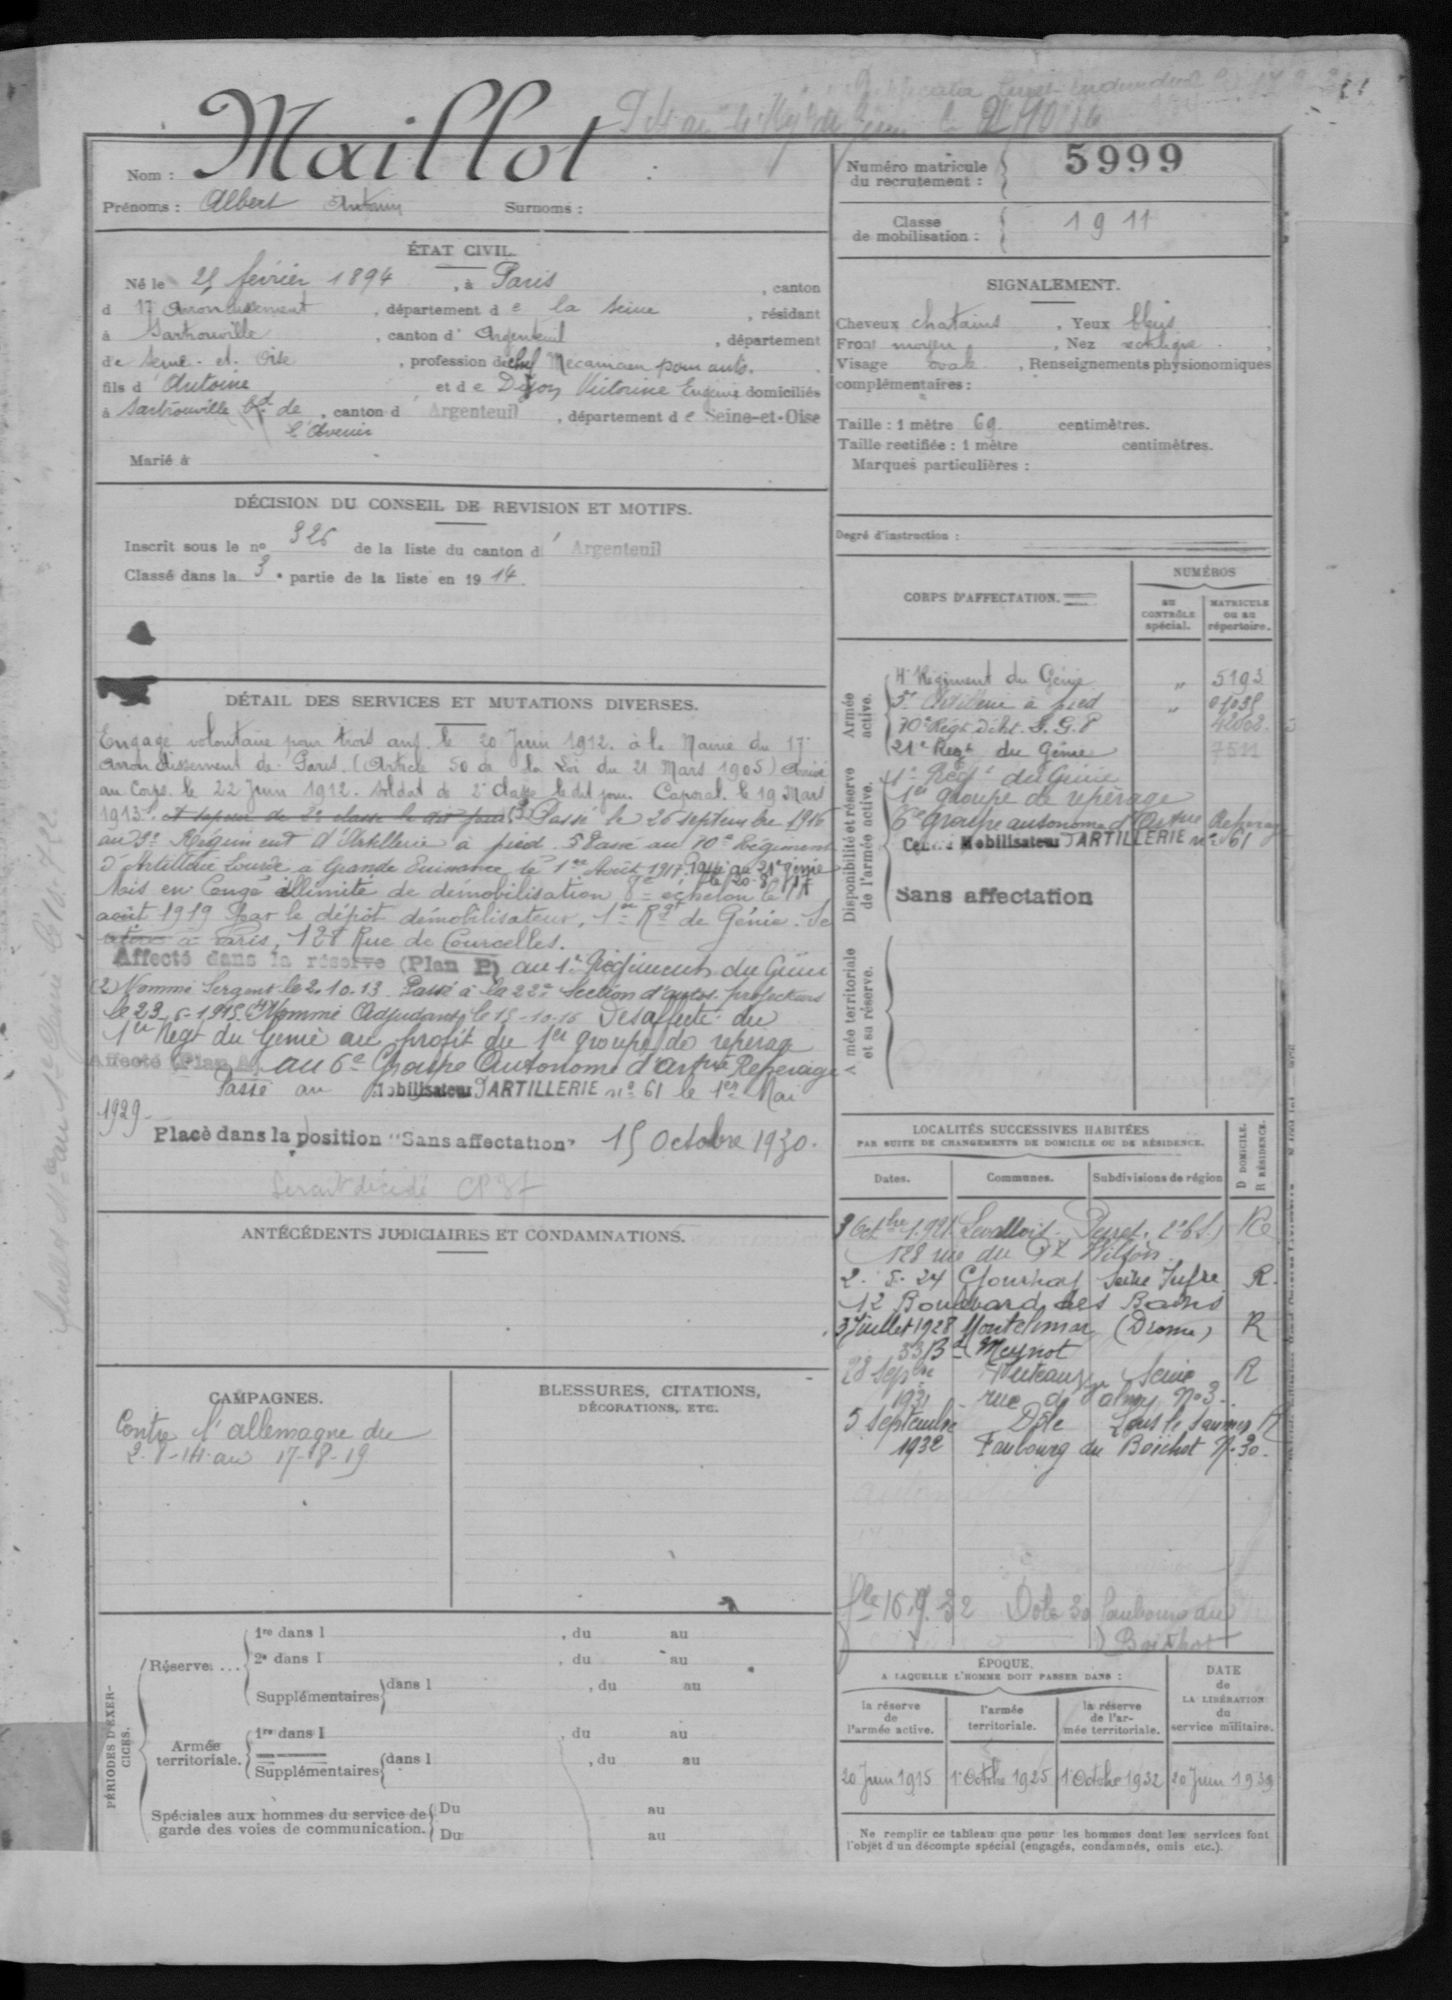 Maillot
Nom :
Prénoms : Albert Antonin Surnoms :
ÉTAT CIVIL.
Né le 25 février 1894, à Paris, canton
d 17 Arrondissement, département de la Seine, résidant
à Sartrouville, canton d'Argenteuil, département
de Seine-et-Oise, profession de chef Mécanicien pour auto.
fils d'Antoine et de Victorine Eugénie domiciliés
à Sartrouville bd de, canton d Argenteuil, département de Seine-et-Oise
l'Avenir
Marié à
DÉCISION DU CONSEIL DE REVISION ET MOTIFS.
Inscrit sous le no 326 de la liste du canton d' Argenteuil
Classé dans la 3e partie de la liste en 1914
DÉTAIL DES SERVICES ET MUTATIONS DIVERSES.
Engagé volontaire pour trois ans le 20 Juin 1912. à la Mairie du 17e
Arrondissement de Paris. (Article 50 de la Loi du 21 Mars 1905) Arrivé
au Corps. le 22 Juin 1912. Soldat de 2e classe ledit jour. Caporal. le 19 Mars
1913. Passé le 26 septembre 1916
au 5e Régiment d'Artillerie à pied. Passé au 70e Régiment
d'Artillerie Lourde à Grande Puissance le 1er Août 1917. Passé au 21e génie
Mis en Congé illimité de démobilisation 8e échelon le 17
août 1919 par le dépôt démobilisateur, 1er Rgt de Génie. Se
à Paris, 128 Rue de Courcelles.
Affecté dans la réserve (Plan P) au 1er Régiment du Génie
(2) Nommé Sergent le 2.10.13 Passé à la 22e Section d'autos-projecteurs
le 23-6-1915 Nommé Adjudant le 15-10-16 Désaffecté du
1er Regt du Génie au profit du 1er groupe de repérage
Affecté (Plan A) au 6e Groupe Autonome d'Artrie Repérage
Passé au Mobilisateur D'ARTILLERIE no 61 le 1er Mai
1929-
Placé dans la position "Sans affectation" 15 Octobre 1930.
ANTÉCÉDENTS JUDICIAIRES ET CONDAMNATIONS.
CAMPAGNES.
Contre l'allemagne du
2-8-14 au 17-8-19
BLESSURES, CITATIONS,
DÉCORATIONS, ETC.
PÉRIODES D'EXERCICES.
Réserve. ...
1re dans l , du au
2e dans l , du au
Supplémentaires dans l , du au
Armée territoriale.
1re dans l , du au
Supplémentaires dans l , du au
Spéciales aux hommes du service de
garde des voies de communication.
Du au
Du au
Numéro matricule
du recrutement : 5999
Classe
de mobilisation : 1911
SIGNALEMENT.
Cheveux chatains, Yeux bleus
Front moyen, Nez rectiligne
Visage ovale, Renseignements physionomiques
complémentaires :
Taille : 1 mètre 69 centimètres.
Taille rectifiée : 1 mètre centimètres.
Marques particulières :
Degré d'instruction :
CORPS D'AFFECTATION.
NUMÉROS
au CONTRÔLE spécial.
MATRICULE ou au répertoire.
Armée active.
4e Régiment du Génie " 5193
5e Artillerie à pied "
70e Régt d'Art. L.G.P
21e Regt du Génie 7511
Disponibilité et réserve de l'armée active.
1er Régt du Génie
1er groupe de repérage
6e Groupe autonome d'Artrie Repérage
Centre Mobilisateur D'ARTILLERIE no 61
Sans affectation
Armée territoriale et sa réserve.
LOCALITÉS SUCCESSIVES HABITÉES
PAR SUITE DE CHANGEMENTS DE DOMICILE OU DE RÉSIDENCE.
D DOMICILE.
R RÉSIDENCE.
Dates. Communes. Subdivisions de région
3 Octbre 1921 Levallois-Perret. Re
128 rue du Pt Wilson
2-5-24 Seine Infre R.
12 Boulevard des Bains
3 Juillet 1928 Montelimar (Drome) R
33 Bd Meynot
28 Sepbre Puteaux Seine R
1931 rue de Valmy No 3.
5 Septembre Dôle Lons le Saunier R
1932 Faubourg du Boichot No 30.
16.9.32 Dole 30 faubourg du
Boichot
ÉPOQUE
A LAQUELLE L'HOMME DOIT PASSER DANS :
la réserve de l'armée active.
l'armée territoriale.
la réserve de l'armée territoriale.
DATE de LA LIBÉRATION du service militaire.
20 Juin 1915 1er Octobre 1925 1er Octobre 1932 20 Juin 1939
Ne remplir ce tableau que pour les hommes dont les services font
l'objet d'un décompte spécial (engagés, condamnés, omis etc.).